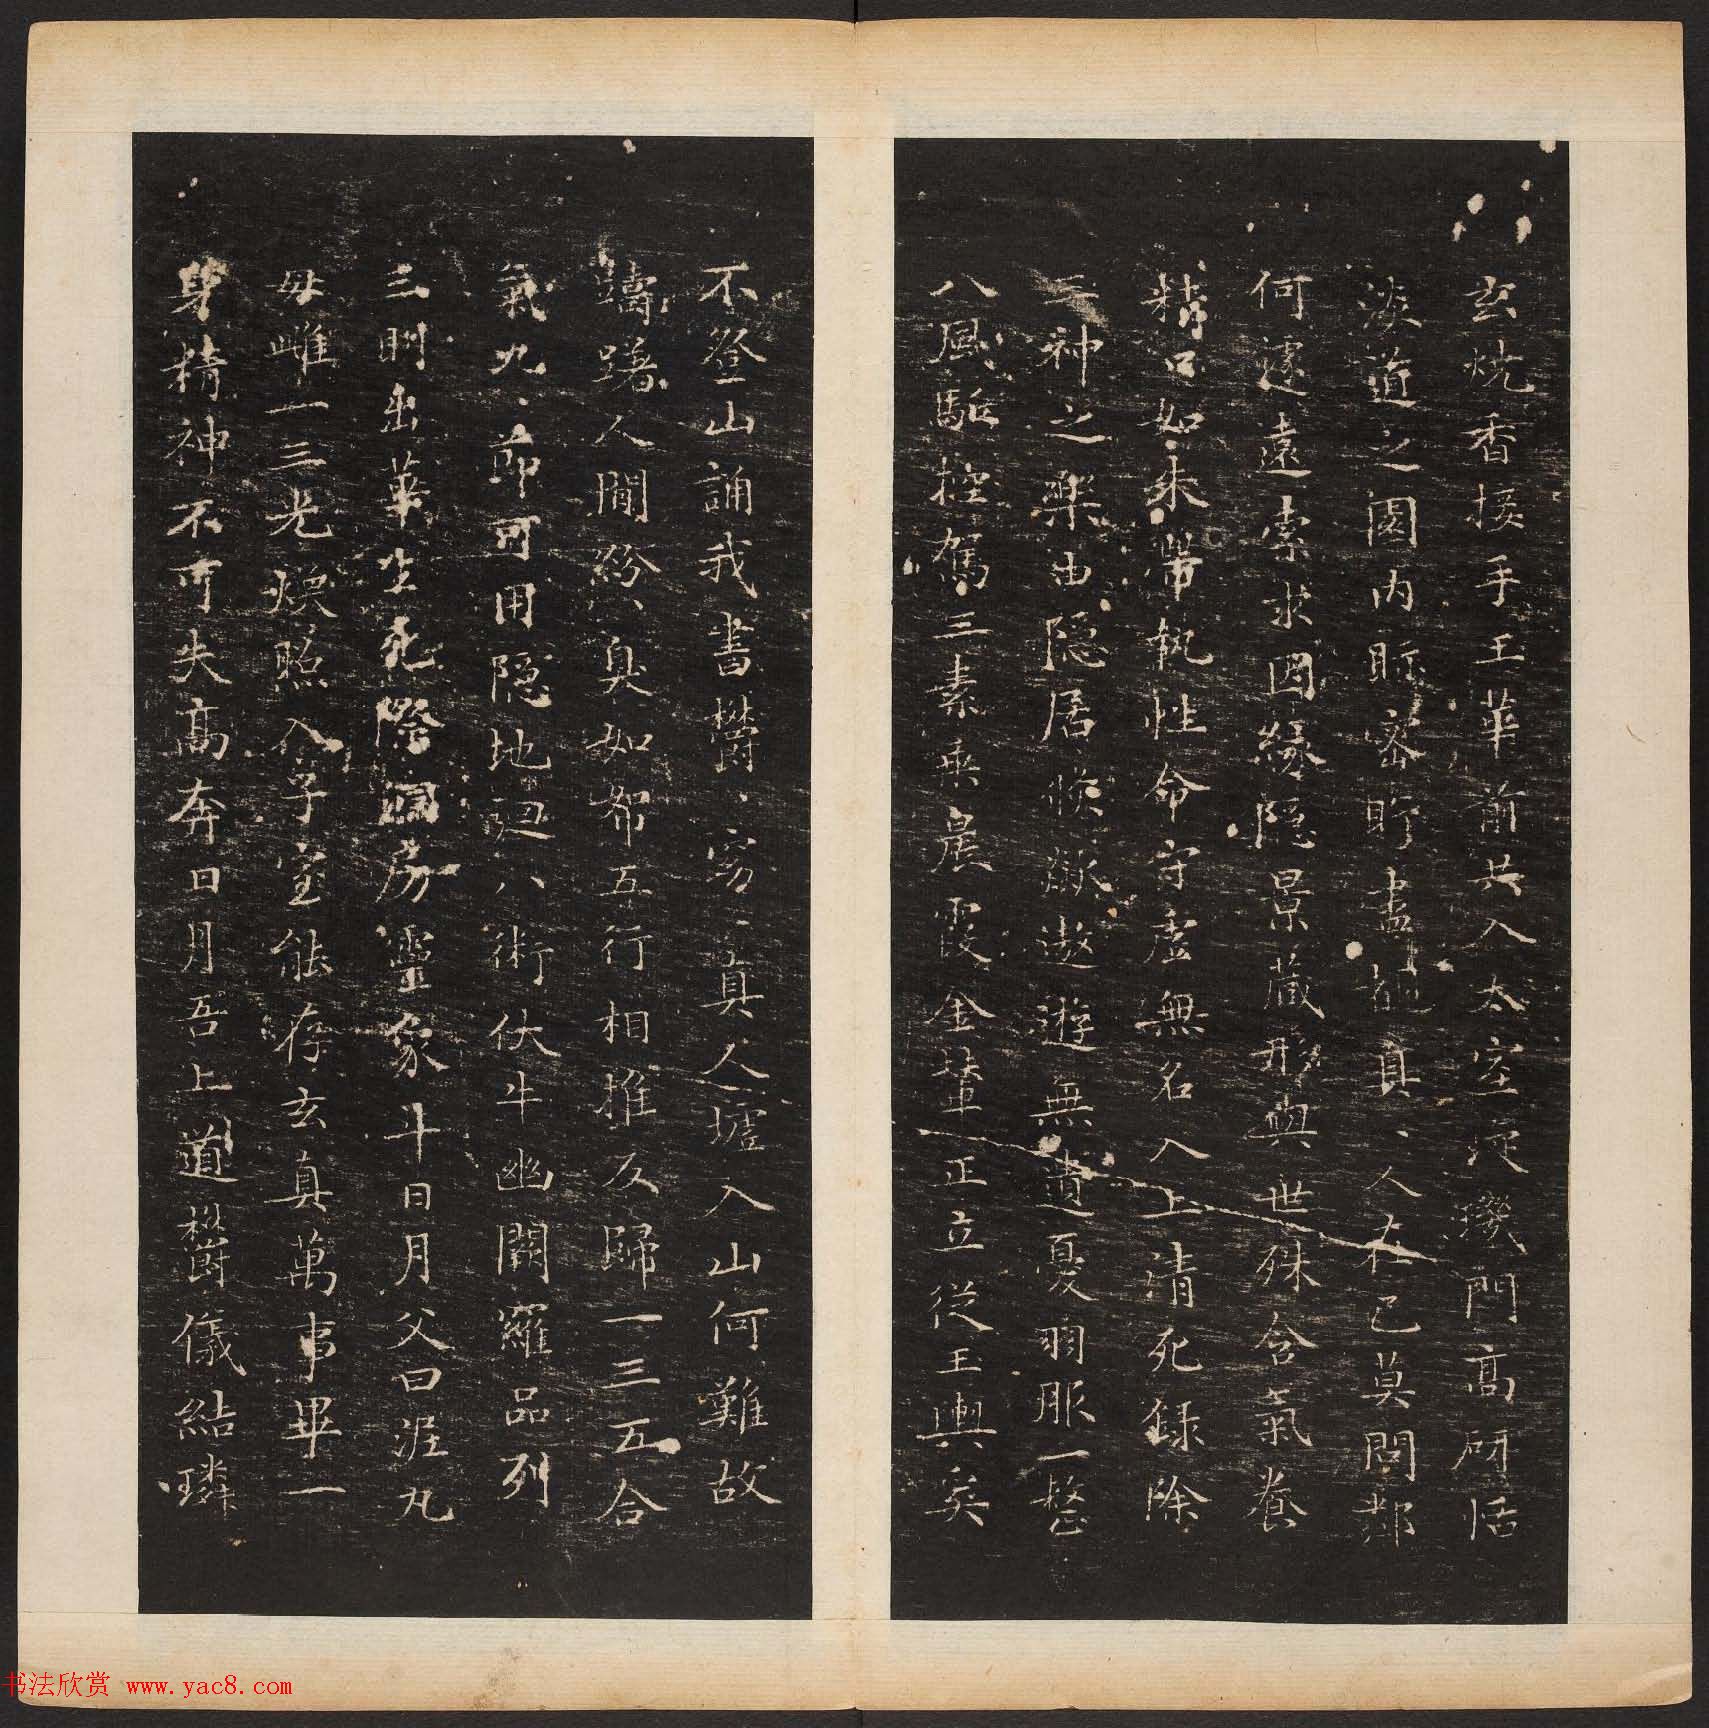 玄燒香接手玉華前共入太室璇璣門高研恬
淡道之園內眎密盼盡覩真、人在己莫問鄰
何遽遠索求因緣隱景藏形與世殊含氣養
精口如朱帶執性命守虛無名入上清死録除
三神之樂由隱居倏欻遨遊無遺憂羽服一整
八風駈控駕三素乘晨霞金輦正立從玉輿矣
不登山誦我書欝、窈、真人墟入山何難故
躊躇人間紛、臭如帤五行相推反歸一三五合
氣九、節可用隱地迴八術伏牛幽闕羅品列
三明出華生死際洞房靈象斗日月父曰泥丸
母雌一三光煥照入子室能存玄真萬事畢一
身精神不可失高奔日月吾上道欝儀結璘
书法欣赏 www.yac8.com